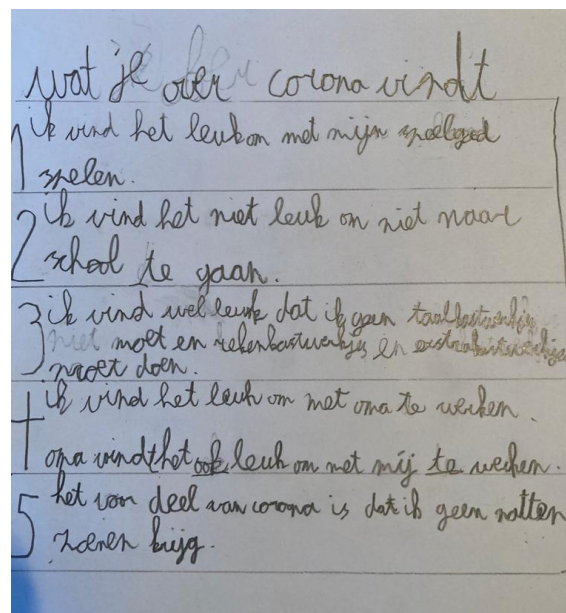 wat je over corona vindt
1 ik vind het leuk om met mijn speelgoed
spelen.
2 ik vind het niet leuk om niet naar
school te gaan.
3 ik vind wel leuk dat ik geen taalkastwerkjes
niet moet en rekenkastwerkjes en
moet doen.
4 ik vind het leuk om met oma te werken.
oma vindt het ook leuk om met mij te werken.
5 het voor deel van corona is dat ik geen natten
zoenen krijg.